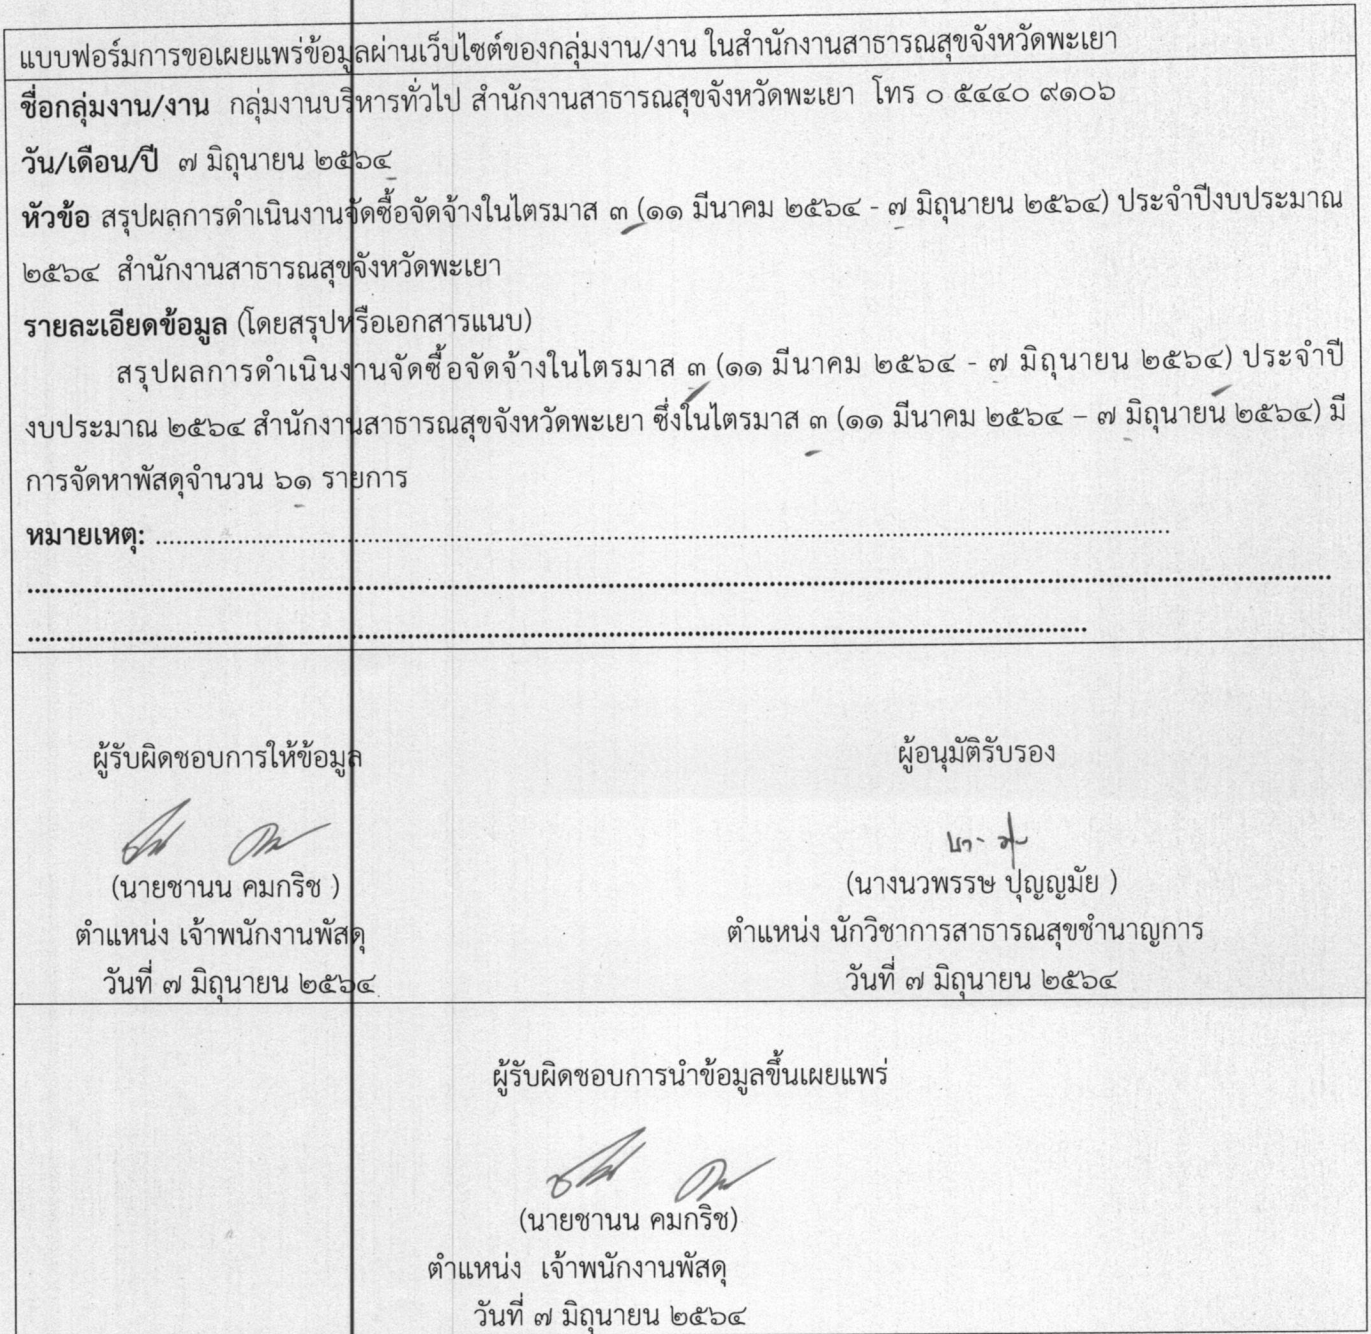 แบบฟอร์มการขอเผยแพร่ข้อมูลผ่านเว็บไซต์ของกลุ่มงาน/งาน ในสำนักงานสาธารณสุขจังหวัดพะเยา
ชื่อกลุ่มงาน/งาน กลุ่มงานบริหารทั่วไป สำนักงานสาธารณสุขจังหวัดพะเยา โทร ๐ ๕๔๔๐ ๙๑๐๖
วัน/เดือน/ปี ๗ มิถุนายน ๒๕๖๔
หัวข้อ สรุปผลการดำเนินงานจัดซื้อจัดจ้างในไตรมาส ๓ (๑๑ มีนาคม ๒๕๖๔ - ๗ มิถุนายน ๒๕๖๔) ประจำปีงบประมาณ
๒๕๖๔ สำนักงานสาธารณสุขจังหวัดพะเยา
รายละเอียดข้อมูล (โดยสรุปหรือเอกสารแนบ)
สรุปผลการดำเนินงานจัดซื้อจัดจ้างในไตรมาส ๓ (๑๑ มีนาคม ๒๕๖๔ - ๗ มิถุนายน ๒๕๖๔) ประจำปี
งบประมาณ ๒๕๖๔ สำนักงานสาธารณสุขจังหวัดพะเยา ซึ่งในไตรมาส ๓ (๑๑ มีนาคม ๒๕๖๔ – ๗ มิถุนายน ๒๕๖๔) มี
การจัดหาพัสดุจำนวน ๖๑ รายการ
หมายเหตุ: ....................................................................................................
....................................................................................................
....................................................................................................
ผู้รับผิดชอบการให้ข้อมูล
(นายชานน คมกริช )
ตำแหน่ง เจ้าพนักงานพัสดุ
วันที่ ๗ มิถุนายน ๒๕๖๔
ผู้อนุมัติรับรอง
(นางนวพรรษ ปุญญมัย )
ตำแหน่ง นักวิชาการสาธารณสุขชำนาญการ
วันที่ ๗ มิถุนายน ๒๕๖๔
ผู้รับผิดชอบการนำข้อมูลขึ้นเผยแพร่
(นายชานน คมกริช)
ตำแหน่ง เจ้าพนักงานพัสดุ
วันที่ ๗ มิถุนายน ๒๕๖๔